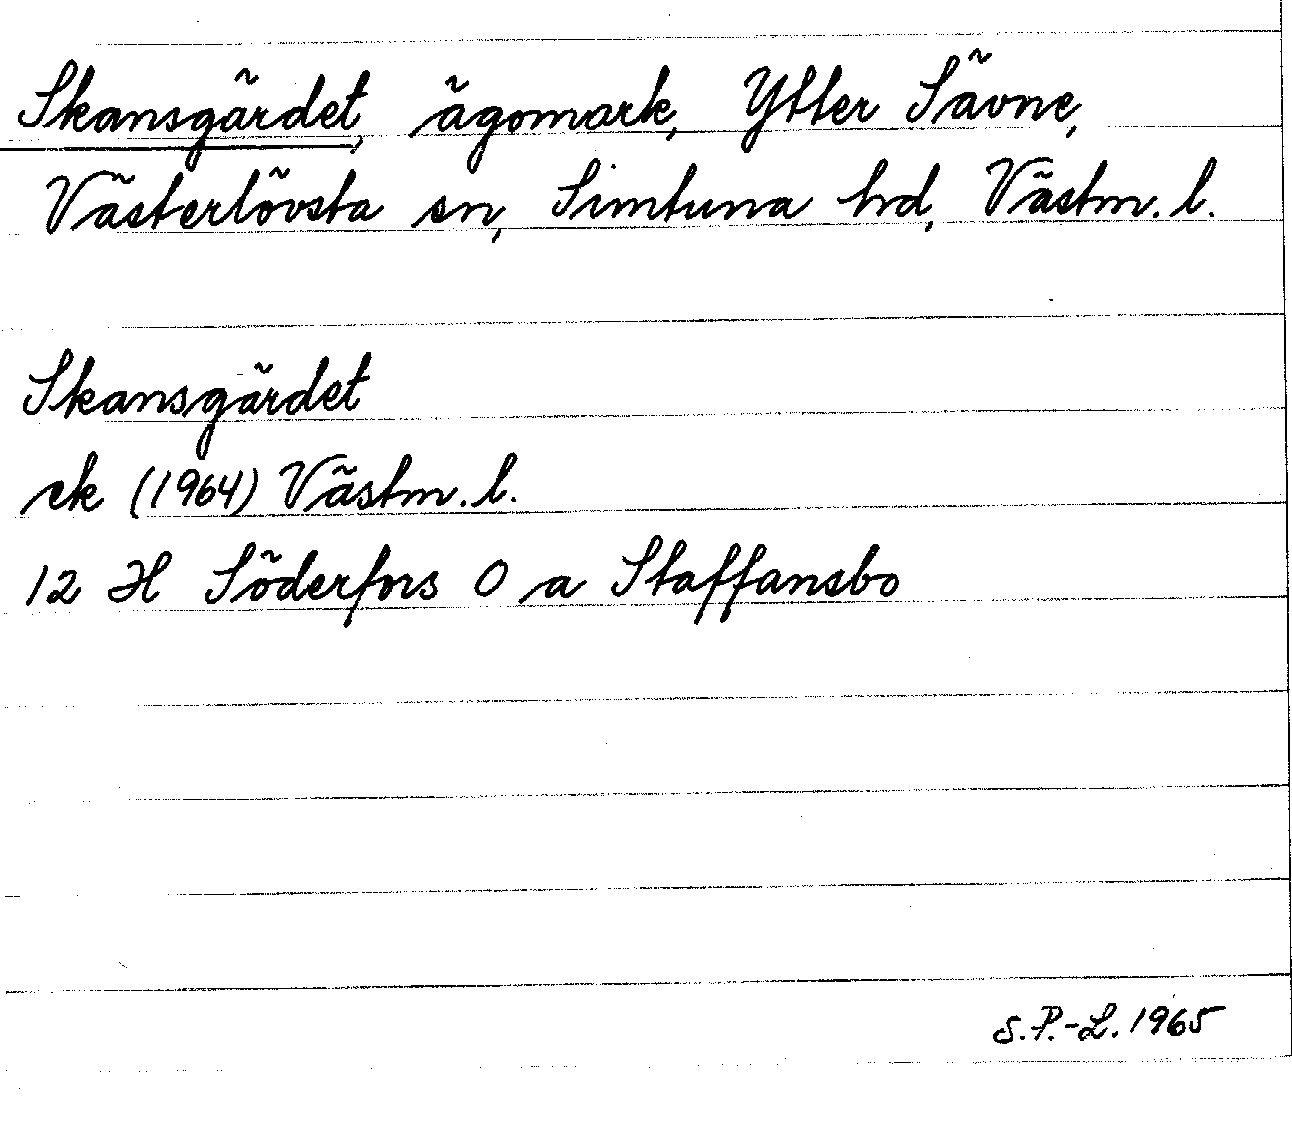 Skansgärdet, ägomark, Ytter Sävne,
Västerlövsta sn, Simtuna hd, Västm. l.
Skansgärdet
ek (1964) Västm. l.
12 H Söderfors 0 a Staffansbo
S.P.-L. 1965